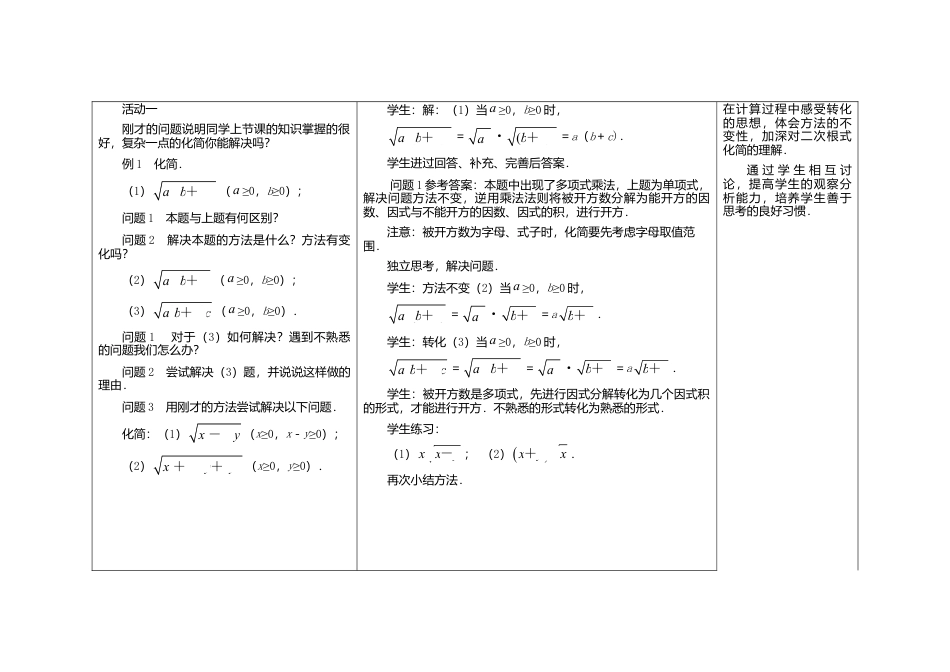 活动一
刚才的问题说明同学上节课的知识掌握的很
好，复杂一点的化简你能解决吗？
例 1 化简．
（1）√a b＋ （a≥0，b≥0）；
问题 1 本题与上题有何区别？
问题 2 解决本题的方法是什么？方法有变
化吗？
（2）√a b＋ （a≥0，b≥0）；
（3）√a b＋ c （a≥0，b≥0）．
问题 1 对于（3）如何解决？遇到不熟悉
的问题我们怎么办？
问题 2 尝试解决（3）题，并说说这样做的
理由．
问题 3 用刚才的方法尝试解决以下问题．
化简：（1）√x － y （x≥0，x－y≥0）；
（2）√x ＋ ＋ （x≥0，y≥0）．
学生：解：（1）当 a≥0，b≥0 时，
√a b＋ ＝√a •√(b＋ ＝a（b＋c）．
学生进过回答、补充、完善后答案．
问题 1 参考答案：本题中出现了多项式乘法，上题为单项式，
解决问题方法不变，逆用乘法法则将被开方数分解为能开方的因
数、因式与不能开方的因数、因式的积，进行开方．
注意：被开方数为字母、式子时，化简要先考虑字母取值范
围．
独立思考，解决问题．
学生：方法不变（2）当 a≥0，b≥0 时，
√a b＋ ＝√a •√b＋ ＝a√b＋ ．
学生：转化（3）当 a≥0，b≥0 时，
√a b＋ c ＝√a b＋ ＝√a •√b＋ ＝a√b＋ ．
学生：被开方数是多项式，先进行因式分解转化为几个因式积
的形式，才能进行开方．不熟悉的形式转化为熟悉的形式．
学生练习：
（1）x x－ ； （2）(x＋ x ．
再次小结方法．
在计算过程中感受转化
的思想，体会方法的不
变性，加深对二次根式
化简的理解．
通过学生相互讨
论，提高学生的观察分
析能力，培养学生善于
思考的良好习惯．